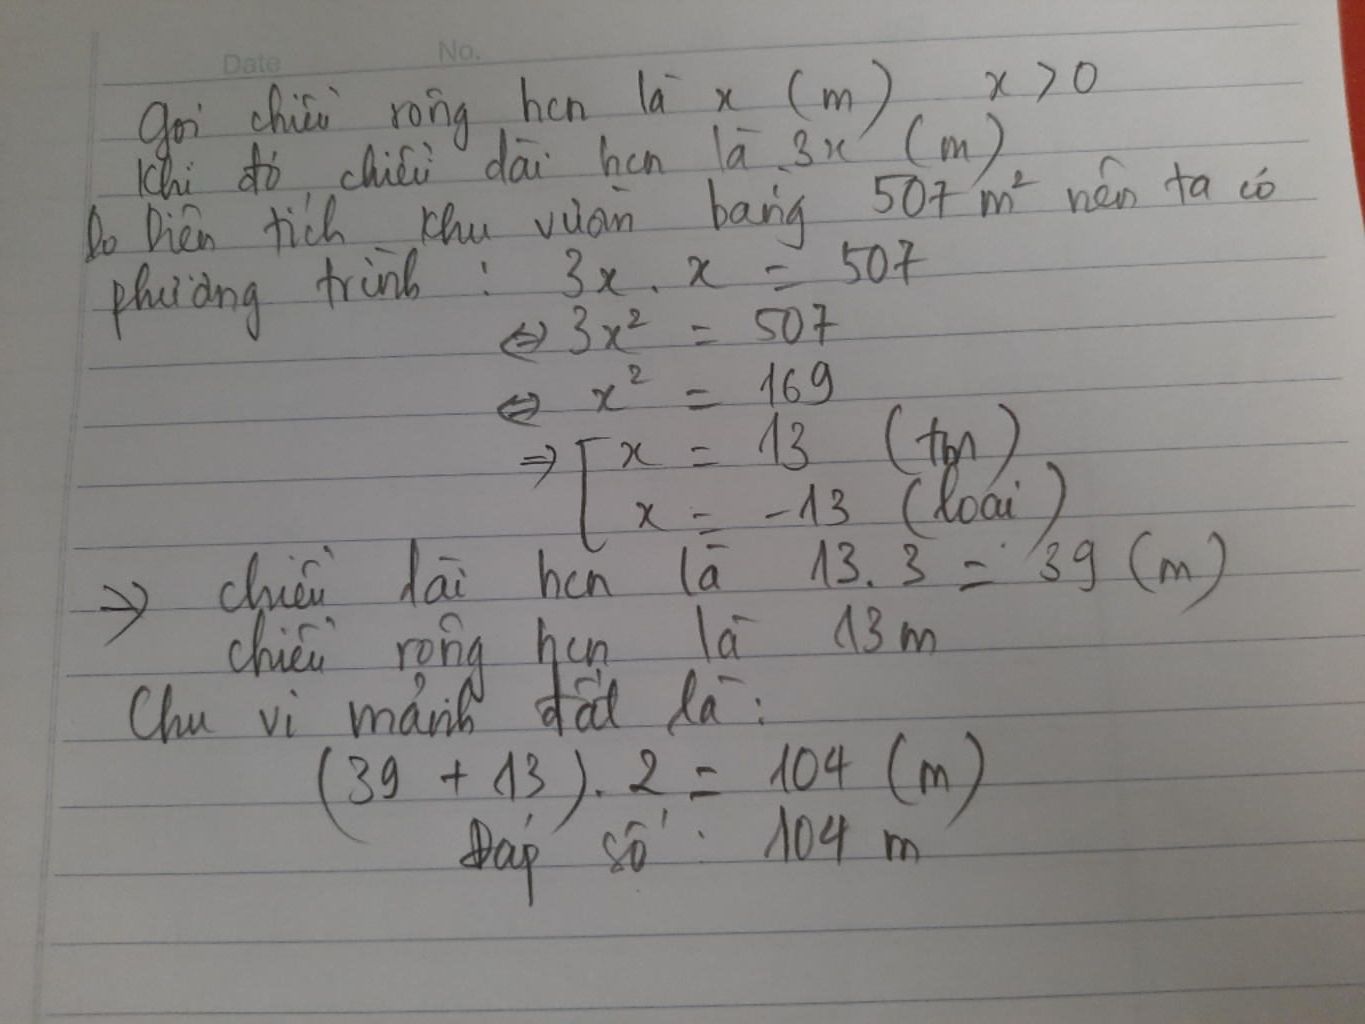 Date No.
Gọi chiều rộng hcn là x (m) x > 0
Khi đó chiều dài hcn là 3x (m)
Do Diện tích khu vườn bằng 507 m² nên ta có
phương trình : 3x . x = 507
⇔ 3x² = 507
⇔ x² = 169
⇒ [ x = 13 (tm)
x = -13 (loại)
⇒ chiều dài hcn là 13. 3 = 39 (m)
chiều rộng hcn là 13 m
Chu vi mảnh đất là :
(39 + 13). 2 = 104 (m)
Đáp số : 104 m